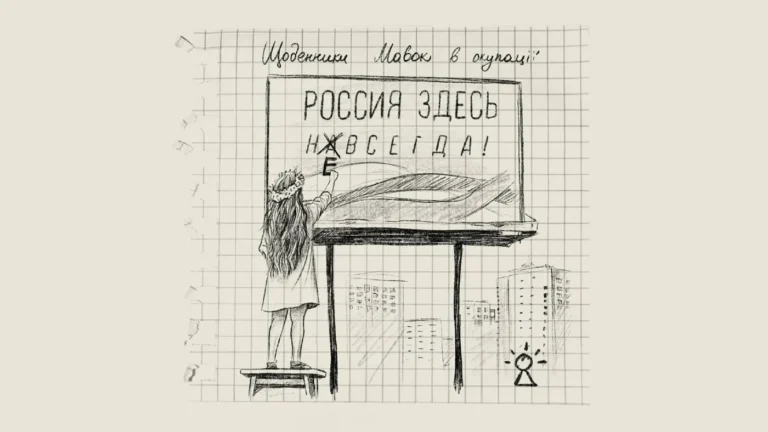 Щоденники Мавок в окупації
РОССИЯ ЗДЕСЬ
НАВСЕГДА!
Е